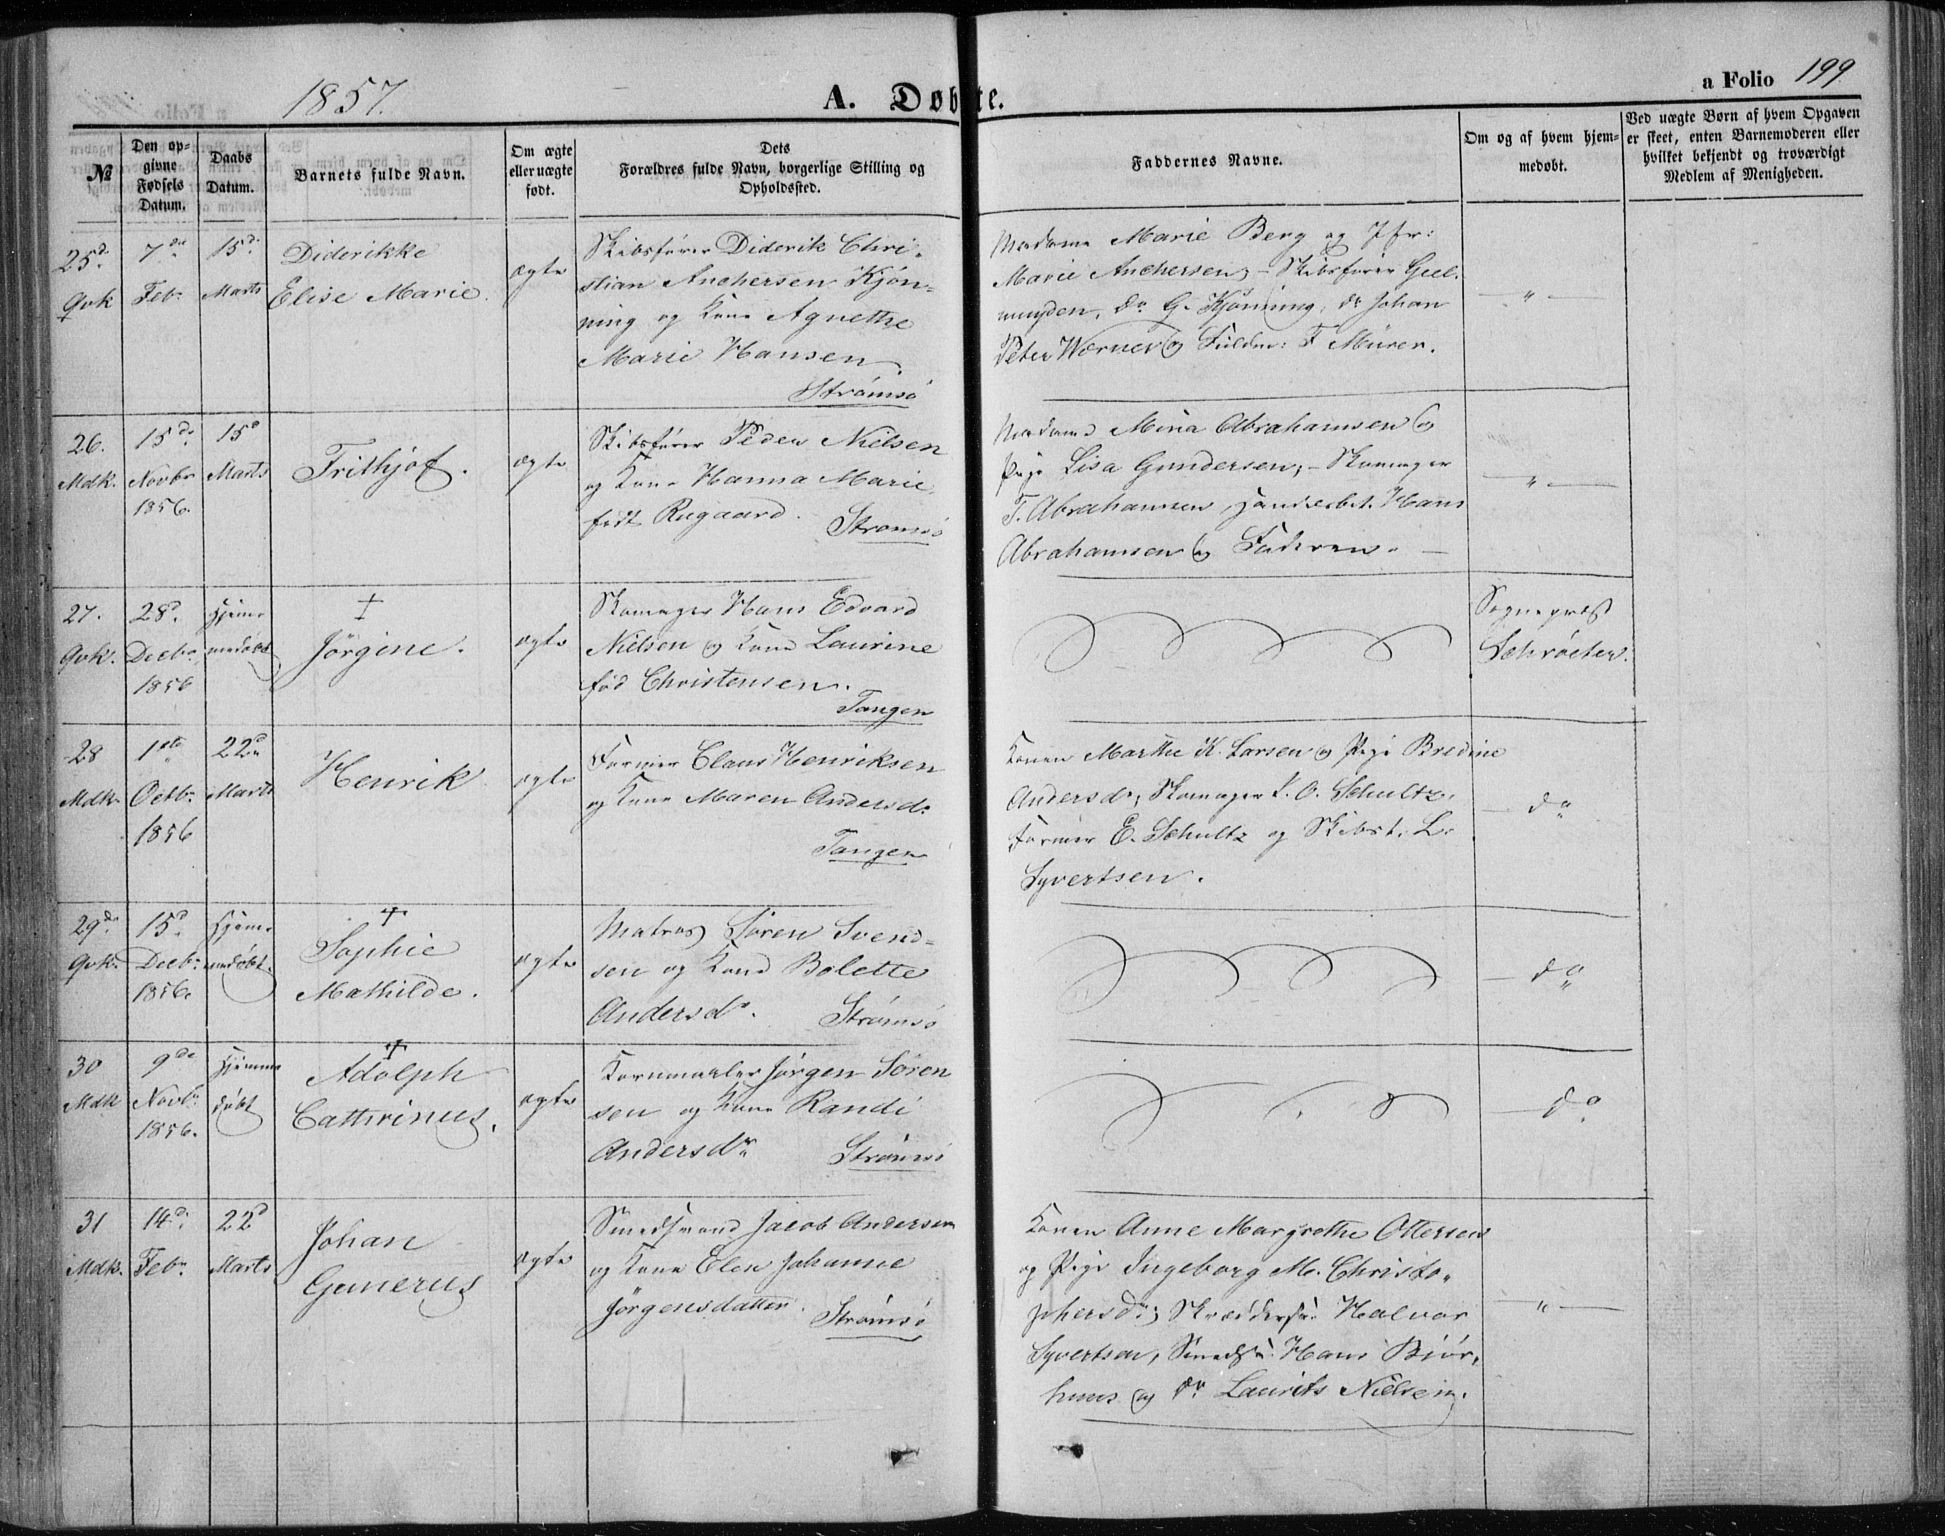 1857.
A. Døbte.
a Folio 199
№
Den opgivne Fødsels Datum.
Daabs Datum.
Barnets fulde Navn.
Om ægte eller uægte født.
Dets Forældres fulde Navn, borgerlige Stilling og Opholdssted.
Faddernes Navne.
Om og af hvem hjemmedøbt.
Ved uægte Børn af hvem Opgaven er skeet, enten Barnemoderen eller hvilket bekjendt og troværdigt Medlem af Menigheden.
25d.
Qvk
7de
Febr
15d.
Marts
Diderikke
Elise Marie.
ægte
Skibsfører Diderik Chri-
stian Anchersen Kjøn-
ning og Kone Agnethe
Marie Hansen
Strømsø
Madame Marie Berg og Jfr:
Marie Anchersen, – Skibsfører Geel-
muyden, do G. Kjønning, do Johan
Peter Wærner og Fuldm: F Mürer.
– " –
26.
Mdk.
15de
Novbr
1856.
15d
Marts
Frithjof.
ægte
Skibsfører Peder Nielsen
og Kone Hanna Marie
født Rugaard.
Strømsø
Madame Mina Abrahamsen og
Pige Lisa Gundersen, – Skomager
T. Abrahamsen, Handsebt. Hans
Abrahamsen og Faderen. –
– " –
27.
Qvk.
28d.
Decbr
1856
Hjemmedøbt
†
Jörgine.
ægte
Skomager Hans Edvard
Nielsen og Kone Laurine
fød Christensen.
Tangen
Sognepræst
Schröeter.
28
Mdk.
1ste
Octbr.
1856
22d
Marts
Henrik
ægte
Former Claus Henriksen
og Kone Maren Andersdr
Tangen
Konen Marthe K. Larsen og Pige Bredine
Andersdr, Skomager L. O. Schultz,
Former E. Schultz og Skibst. L.
Syvertsen.
– do
29de
Qvk.
15d.
Decbr.
1856.
Hjemmedøbt.
†
Sophie
Mathilde.
ægte
Matros Sören Svend-
sen og Kone Bolette
Andersdr.
Strømsø
– do
30
Mdk
9de
Novbr
1856.
Hjemmedøbt
†
Adolph
Cathrinus.
ægte
Kornmaaler Jörgen Sören
sen og Kone Randi
Andersdr
Strømsø
– do
31
Mdk.
14d.
Febr.
22d
Marts
Johan
Gunerus
ægte
Smedsvend Jacob Andersen
og Kone Elen Johanne
Jörgensdatter.
Strømsø
Konen Anne Margrethe Ottersen
og Pige Ingeborg M. Christo-
phersdr; Skræddersv. Halvor
Syvertsen, Smedsv. Hans Biör-
huus og do Laurits Nielsen.
– " –